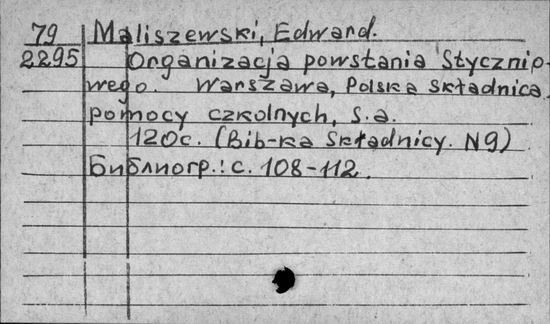 79 Maliszewski, Edward.
2295 Organizacja powstania Stycznio-
wego. Warszawa, Polska składnica
pomocy czkolnych, s.a.
120с. (Bib-ka Składnicy. N9)
Библиогр.: с. 108-112.